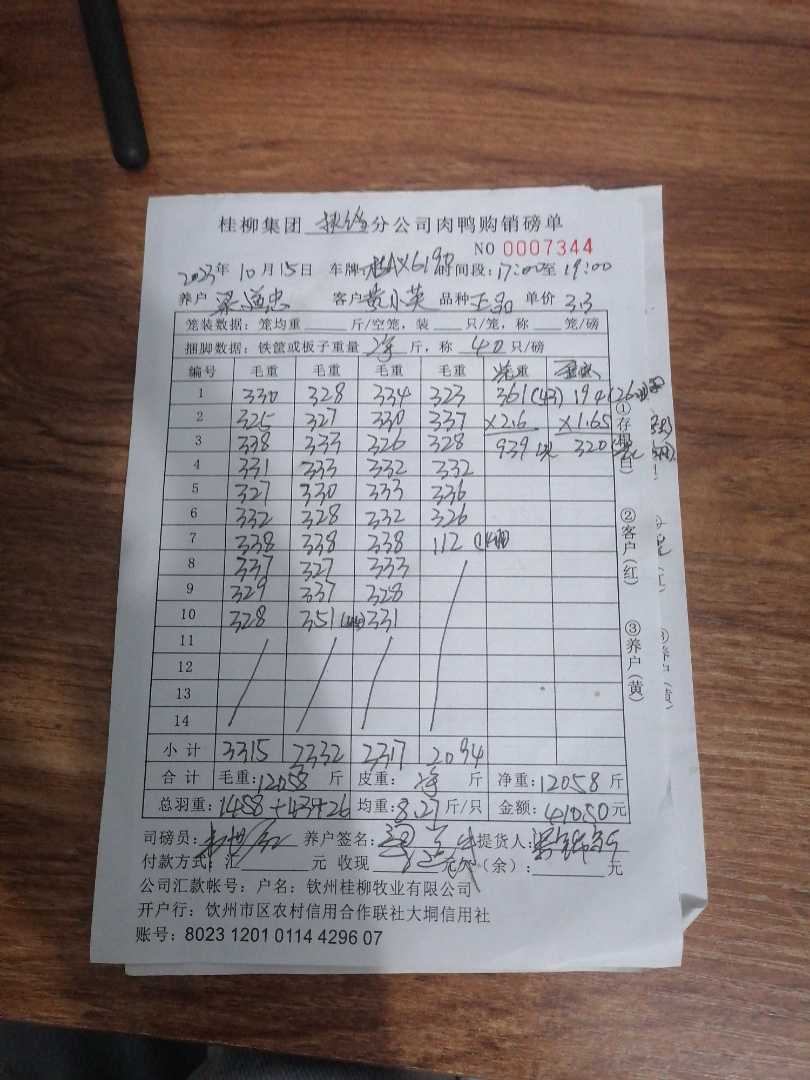 桂柳集团 分公司肉鸭购销磅单
NO 0007344
2023年 10月 15日 车牌 时间段:17:00至 19:00
养户 梁道忠 客户 黄小英 品种 正品 单价 3.3
笼装数据:笼均重 斤/空笼,装 只/笼,称 笼/磅
捆脚数据:铁筐或板子重量 净 斤,称 40 只/磅
编号 毛重 毛重 毛重 毛重 重
1 330 328 334 323 361(43) 194(26
2 325 327 330 337 ×2.6 ×1.65
3 338 333 326 328 939 320
4 331 333 332 332
5 327 330 333 336
6 332 328 332 326
7 338 338 338 112
8 337 327 333
9 329 337 328
10 328 351 331
11
12
13
14
小计 3315 3332 3317 2094
合计 毛重:12058 斤 皮重:净 斤 净重:12058斤
总羽重:1458+43+26 均重:8.27斤/只 金额:41050元
司磅员: 养户签名: 提货人:
付款方式:汇 元 收现 元 欠(余): 元
公司汇款帐号:户名:钦州桂柳牧业有限公司
开户行:钦州市区农村信用合作联社大垌信用社
账号:8023 1201 0114 4296 07
①存根(白)
②客户(红)
③养户(黄)